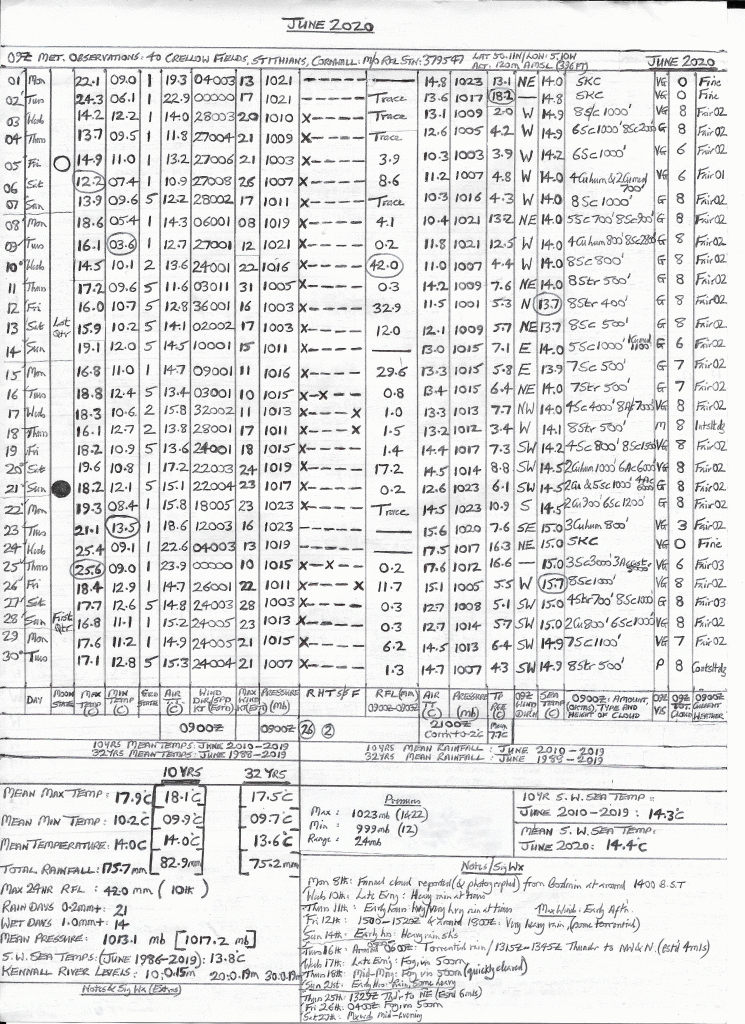 JUNE 2020
09Z MET. OBSERVATIONS: 40 CRELLOW FIELDS, STITHIANS, CORNWALL: M/O ROL STN: 379547 LAT 50.11N/LON: 5.10W ALT. 120m AMSL (396FT) JUNE 2020
01 Mon 22.1 09.0 1 19.3 04003 13 1021 ----- — 14.8 1023 13.1 NE 14.0 SKC VG 0 Fine
02 Tues 24.3 06.1 1 22.9 00000 17 1021 ----- Trace 13.6 1017 18.2 — 14.8 SKC VG 0 Fine
03 Wed 14.2 12.2 1 14.0 28003 20 1010 X---- Trace 13.1 1009 2.0 W 14.9 8Sc 1000' VG 8 Fair02
04 Thurs 13.7 09.5 1 11.8 27004 21 1009 X---- Trace 12.6 1005 4.2 W 14.9 6Sc1000' 8Sc2500' G 8 Fair02
05 Fri 14.9 11.0 1 13.2 27006 21 1003 X---- 3.9 10.3 1003 3.9 W 14.2 6Sc1000' VG 6 Fair02
06 Sat 12.2 07.4 1 10.9 27008 26 1007 X---- 8.6 11.2 1007 4.8 W 14.0 VG 6 Fair01
07 Sun 13.9 09.6 5 12.2 28002 17 1011 X---- Trace 10.3 1016 4.3 W 14.0 8Sc 1000' G 8 Fair02
08 Mon 18.6 05.4 1 14.3 06001 08 1019 X---- 4.1 10.4 1021 13.2 NE 14.0 5Sc 700' 8Sc900' G 8 Fair02
09 Tues 16.1 03.6 1 12.7 27001 12 1021 X---- 0.2 11.8 1021 12.5 W 14.0 4Cuhum 800' G 8 Fair02
10 Wed 14.5 10.1 2 13.6 24001 22 1016 X---- 42.0 11.0 1007 4.4 W 14.0 8Sc 800' G 8 Fair02
11 Thurs 17.2 09.6 5 11.6 03011 31 1005 X---- 0.3 14.2 1009 7.6 NE 14.0 8Str 700' G 8 Fair02
12 Fri 16.0 10.7 5 12.8 36001 16 1003 X---- 32.9 11.5 1001 5.3 N 13.7 8Str 400' G 8 Fair02
13 Sat Last Qtr 15.9 10.2 5 14.1 02002 17 1003 X---- 12.0 12.1 1009 5.7 NE 13.7 8Sc 500' G 8 Fair02
14 Sun 19.1 12.0 5 14.5 10001 15 1011 X---- — 13.0 1015 7.1 E 14.0 5Sc1000' G 6 Fair02
15 Mon 16.8 11.0 1 14.7 09001 11 1016 X---- 29.6 13.3 1015 5.8 E 13.9 7Sc 500' G 7 Fair02
16 Tues 18.8 12.4 5 13.4 03001 10 1015 X-X-- 0.8 13.4 1015 6.4 NE 14.0 7Str 500' G 7 Fair02
17 Wed 18.3 10.6 2 15.8 32002 11 1013 X---X 1.0 13.3 1013 7.7 NW 14.0 4Sc4000' 8Ac7000' VG 8 Fair02
18 Thurs 16.1 12.7 2 13.8 28001 17 1011 X---X 1.5 13.2 1012 3.4 W 14.1 8Str 500' M 8
19 Fri 18.2 10.9 5 13.6 24001 18 1015 X---- 1.4 14.4 1017 7.3 SW 14.2 4Sc 800' 8Sc1500' VG 8 Fair02
20 Sat 19.6 10.8 1 17.2 22003 24 1019 X---- 17.2 14.5 1014 8.8 SW 14.5 2Cuhum1000' 6Ac6000' VG 8 Fair02
21 Sun 18.2 12.1 5 15.1 22004 23 1017 X---- 0.2 12.6 1023 6.1 SW 14.5 G 8 Fair02
22 Mon 19.3 08.4 1 15.8 18005 23 1023 X---- Trace 14.5 1023 10.9 S 14.5 2Cu700' 6Sc1200' G 8 Fair02
23 Tues 21.1 13.5 1 18.6 12003 16 1023 ----- — 15.6 1020 7.6 SE 15.0 3Cuhum 800' VG 3 Fair02
24 Wed 25.4 09.1 1 22.6 04003 13 1019 ----- — 17.5 1017 16.3 NE 15.0 SKC VG 0 Fine
25 Thurs 25.6 09.0 1 23.9 00000 10 1015 X-X-- 0.2 17.6 1012 16.6 — 15.0 VG 6 Fair03
26 Fri 18.4 12.9 1 14.7 26001 22 1011 X---X 11.7 15.1 1005 5.5 W 15.7 8Sc1000' VG 8 Fair02
27 Sat 17.7 12.6 5 14.8 24003 28 1003 X---- 0.3 12.7 1008 5.1 SW 15.0 4Str700' 8Sc1000' G 8 Fair03
28 Sun First Qtr 16.8 11.1 1 15.2 24005 23 1013 X---- 0.3 12.7 1014 5.7 SW 15.0 2Cu800' 6Sc1000' VG 8 Fair02
29 Mon 17.6 11.2 1 14.9 24005 21 1015 X---- 6.2 14.5 1013 6.4 SW 14.9 7Sc1100' VG 7 Fair02
30 Tues 17.1 12.8 5 15.3 24004 21 1007 X---- 1.3 14.7 1007 4.3 SW 14.9 8Str 500' P 8
DAY MOON STATE MAX TEMP (°C) MIN TEMP (°C) GRD STATE AIR TT (°C) WIND DIR/SPD KT (6pm) MAX WIND KT PRESSURE (mb) R H T S/S F RFL (mm) 0900Z-0900Z AIR TT (°C) PRESSURE (mb) TP RGE (°C) 09Z WIND DIRN SEA TEMP (°C) 0900Z: AMOUNT, (OKTAS) TYPE, AND HEIGHT OF CLOUD 09Z VIS 09Z TOT. CLOUD 0900Z CURRENT WEATHER
0900Z 0900Z 26 2 2100Z Corr to ±0.2°C Mean 7.7C
10 YRS MEAN TEMPS: JUNE 2010-2019 10 YRS MEAN RAINFALL: JUNE 2010-2019
32 YRS MEAN TEMPS: JUNE 1988-2019 32 YRS MEAN RAINFALL: JUNE 1988-2019
10 YRS 32 YRS
MEAN MAX TEMP: 17.9°C [18.1°C] [17.5°C]
MEAN MIN TEMP: 10.2°C [09.9°C] [09.7°C]
MEAN TEMPERATURE: 14.0C [14.0°C] [13.6°C]
TOTAL RAINFALL: 175.7mm [82.9mm] [75.2mm]
MAX 24HR RFL: 42.0 mm (10th)
RAIN DAYS 0.2mm+: 21
WET DAYS 1.0mm+: 14
MEAN PRESSURE: 1013.1 mb [1017.2 mb]
S.W. SEA TEMPS: (JUNE 1986-2019): 13.8°C
KENNALL RIVER LEVELS: 10: 0.15m 20: 0.19m 30: 0.19m
Notes & Sig Wx (Extras)
Pressure
Max: 1023mb (1&22)
Min: 999mb (12)
Range: 24mb
10YR S.W. SEA TEMP:
JUNE 2010-2019: 14.3°C
MEAN S.W. SEA TEMP:
JUNE 2020: 14.4°C
Notes/Sig Wx
Mon 8th: Funnel cloud reported (& photographed) from Bodmin at around 1400 B.S.T
Wed 10th: Late Evng: Heavy rain at times
Thurs 11th: Early hours hvy/Very hvy rain at times Max Wind: Early Aftn.
Fri 12th: 1500-1520Z & around 1800Z: Very heavy rain, (some torrential)
Sun 14th: Early hrs: Heavy rain sh's
Tues 16th: Around 0600Z: Torrential rain / 1315Z-1345Z Thunder to NW & N. (Estd 4mls)
Wed 17th: Late Eve'g: Fog, vis 500m
Thurs 18th: Mid-Mng: Fog vis 500m (quickly cleared)
Sun 21st: Early hrs: Rain, some heavy
Thurs 25th: 1325Z Thdr to NE (Estd 6mls)
Fri 26th: 0400Z Fog vis 500m
Sat 27th: Max wind mid-evening